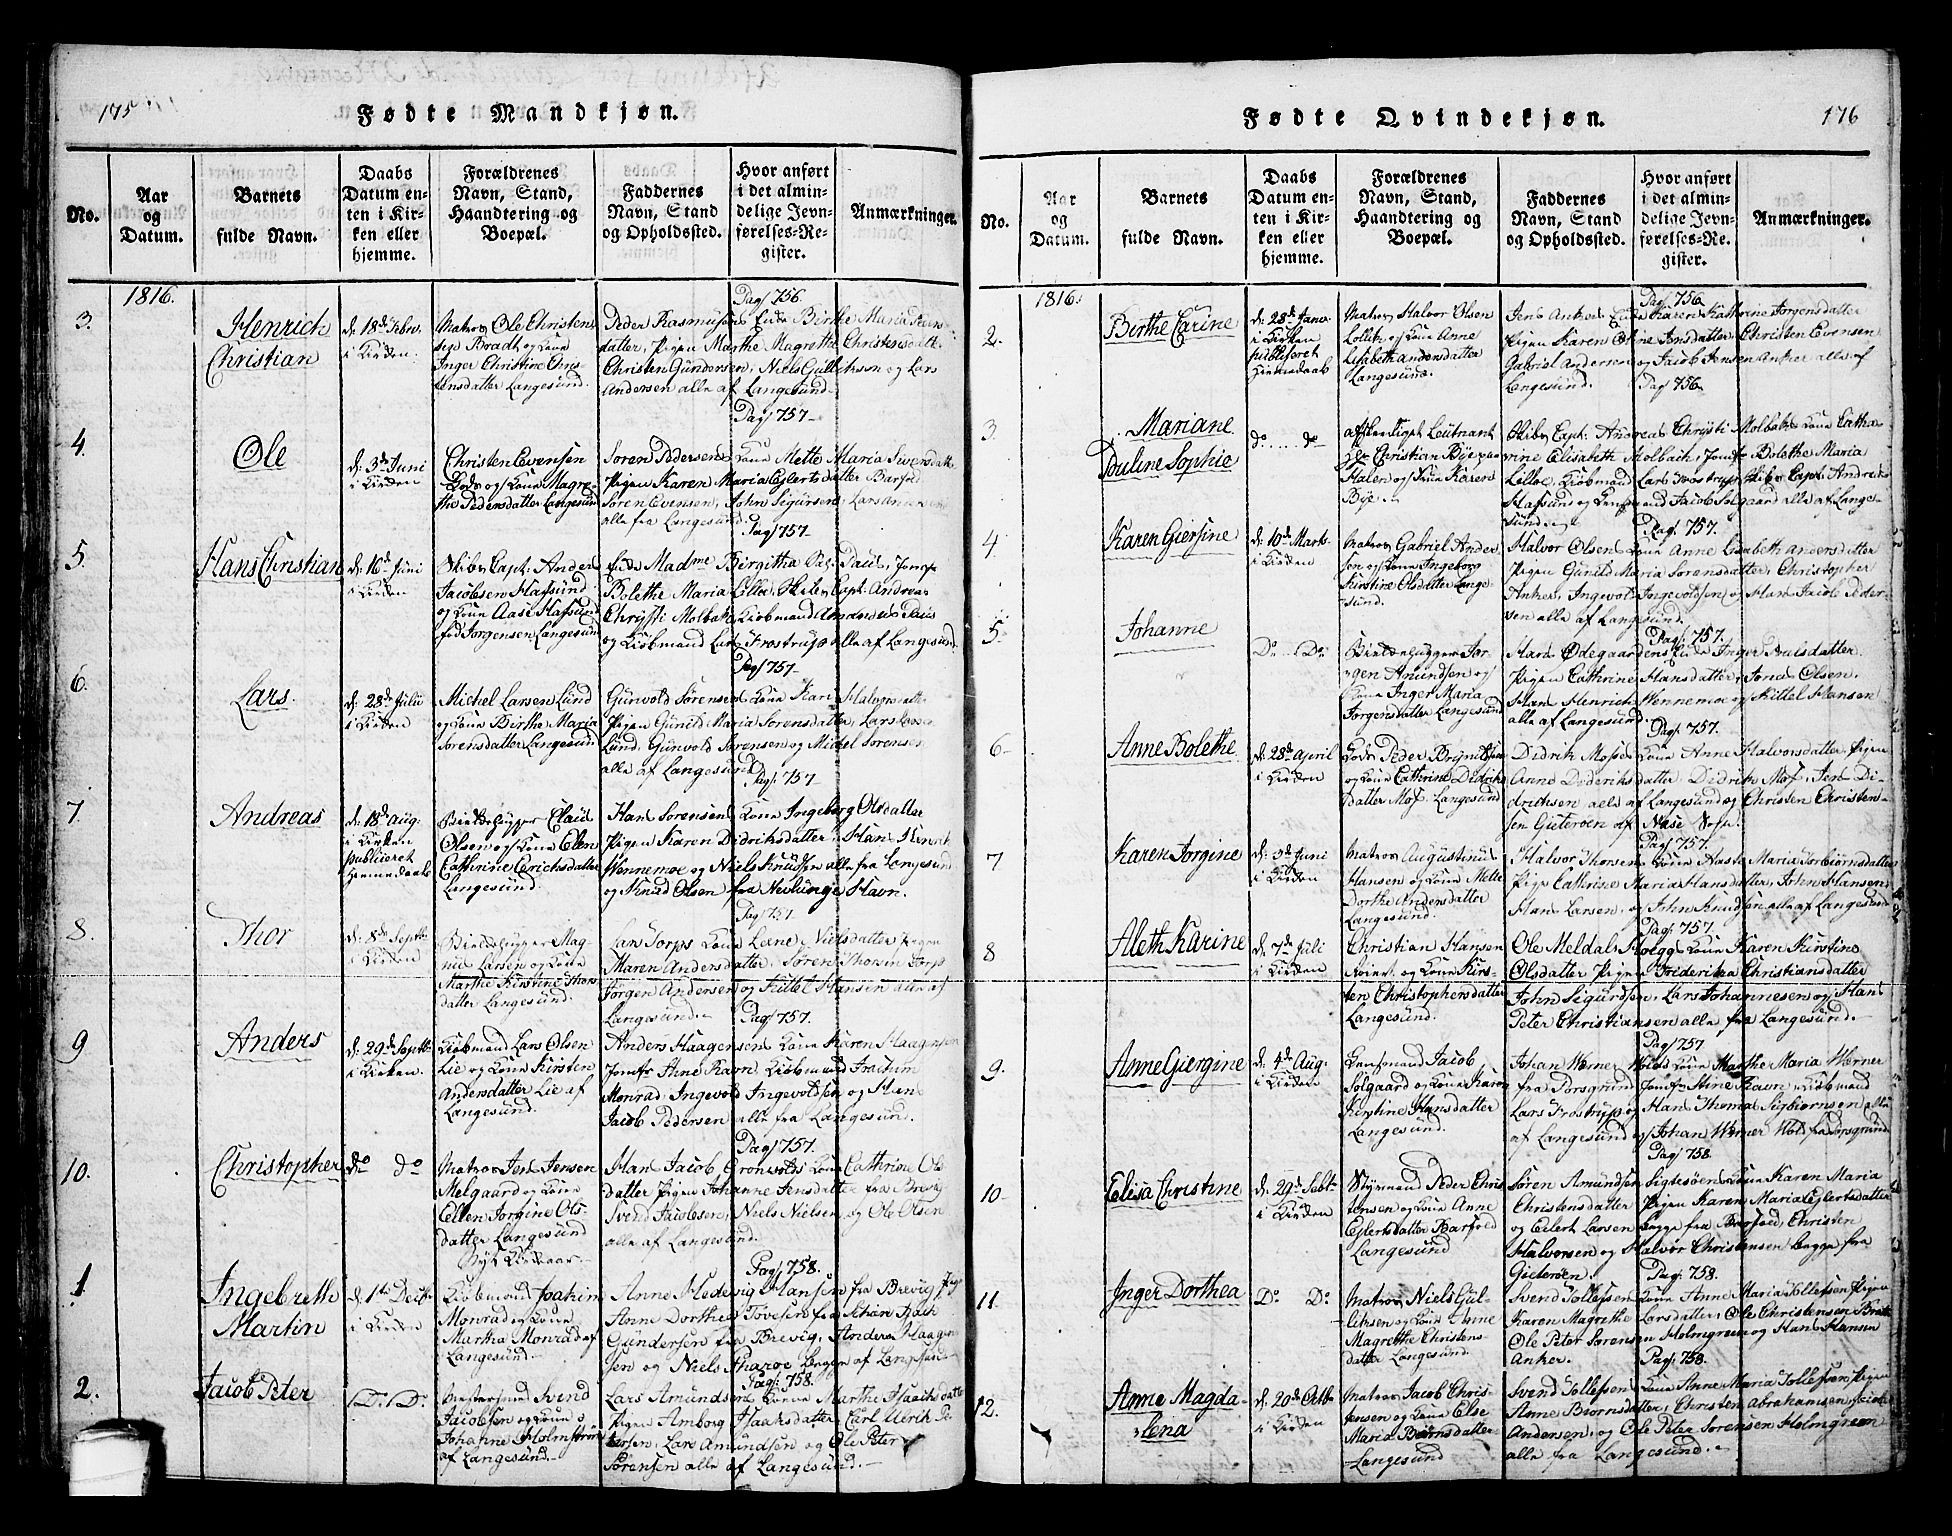 175
Fødte Mandkjøn.
No.
Aar
og
Datum.
Barnets
fulde Navn.
Daabs
Datum en-
ten i Kir-
ken eller
hjemme.
Forældrenes
Navn, Stand,
Haandtering og
Boepæl.
Faddernes
Navn, Stand
og Opholdssted.
Hvor anført
i det almin-
delige Jevn-
førelses-Re-
gister.
Anmærkninger.
1816.
3.
Henrich
Christian
d: 18de Febr.
i Kirken.
Matros Ole Christen-
sen Bradt og Kone
Inger Christine Chris-
tensdatter Langesund.
Pag 756.
Peder Rasmusens Enke Birthe Maria Peders-
datter, Pigen Marthe Magrethe Christensdatt:
Christen Gundersen, Niels Gullichsen og Lars
Andersen alle af Langesund.
4.
Ole
d: 3de Juni
i Kirken
Christen Evensen
Lods og Kone Magre-
the Pedersdatter Langesund
Pag 757.
Soren Pedersens Kone Mette Maria Siversdatt:
Pigen Karen Maria Eylertsdatter Barfod
Soren Evensen, John Sigursen, Lars Andersen
alle fra Langesund.
5.
Hans Christian
d: 16de Juni
i Kirken
Skibs Capt: Anders
Jacobsen Hafsund
og Kone Aase Hafsund
fød Jorgensen, Langesund
Pag 757.
Bolethe Maria Lilloe, Skibs Capt: Andreas
Christi Molbak, Kiøbmand
og Kiobmand Lars Trostrup alle af Langesund.
6.
Lars.
d: 28de Julii
i Kirken
Michel Larsen Lund
og Kone Birthe Maria
Sorensdatter Langesund
Pag 757.
Gunvold Sørensens Kone Kari
Pigen Gunild Maria Sorensdatter, Lars Larsen
Lund, Gunvold Sorensen og Michel Sorensen
alle af Langesund
7.
Andreas
d: 18de Aug:
i Kirken
publiceret
Hiemmedaab
Olsen og Kone Ellen
Cathrine Erichsdatter
Langesund
Pag 757.
Hans Sorensens Kone Ingeborg Olsdatter
Pigen Karen Didriksdatter, Hans Henrik
Wennemoe og Niels Knudsen alle fra Langesund
og Knud Olsen fra Nevlunge Havn.
8.
Thor
d: 8de Septbr
i Kirken
nus Larsen og Kone
Marthe Kirstine Thors-
datter Langesund.
Pag 757.
Lars Torps Kone Lene Nielsdatter Pigen
Maren Andersdatter, Soren Thorsen Torp
Jørgen Andersen og Kittel Hansen alle af
Langesund.
9
Anders
d: 29de Septbr
i Kirken.
Kiobmand Lars Olsen
Lie og Kone Kirsten
Andersdatter Lie af
Langesund.
Pag 757.
Anders Haagensens Kone Karen Haagensen
Jomfr Ane Ravn, Kiøbmand
Monrad, Ingevold Ingevoldsen og Hans
Jacob Pedersen alle fra Langesund.
10.
Christopher
do do
Matros Jens Jensen
Melgaard og Kone
Ellen Jorgine Ols-
datter Langesund
Pag 757.
Hans Jacob Gronvolds Kone Cathrine Ols-
datter Pigen Johanne Jensdatter fra Brevig
Svend Jacobsen, Niels Nielsen, og Ole Olsen
alle af Langesund.
1.
Ingebreth
Martin
d. 1te Decbr
i Kirken
Kiøbmand Joachim
Monrad og Kone
Martha Monrad af
Langesund.
Pag 758.
Anne Hedevig Hansen fra Brevig
Anne Dorthea
Gundersen fra Brevig, Anders Haagen-
sen og Niels
2.
Jacob Peter
D. D.
Svend
Jacobsen og Kone
Johanne Holmstrøm
af Langesund.
Pag: 758.
Lars Amundsens Kone Marthe Isaachsdatter
Pigen Amborg Isaaksdatter, Carl Ulrik Pe-
tersen, Lars Amundsen og Ole Peter
Sorensen alle af Langesund.
176
Fødte Qvindekjøn.
No.
Aar
og
Datum.
Barnets
fulde Navn.
Daabs
Datum en-
ten i Kir-
ken eller
hjemme.
Forældrenes
Navn, Stand,
Haandtering og
Boepæl.
Faddernes
Navn, Stand
og Opholdssted.
Hvor anført
i det almin-
delige Jevn-
førelses-Re-
gister.
Anmærkninger.
1816.
2.
Birthe Carine
d: 28de Janv:
i Kirken
publiseret
Hiemedaab
Matros Halvor Olsen
Lolleth og Kone Anne
Lisabeth Andersdatter
Langesund.
Pag 756
Jens Ankers Enke Karen Kathrine Jorgensdatter
Pigen Karen Oline Jensdatter, Christen Evensen
Gabriel Andersen og Jacob Jensen Anker alle af
Langesund.
Pag 756
3.
Mariane
Pauline Sophie
do do
Leutnant
Christian Bye
og Frue Karen
Bye.
Skibs Capt: Andreas Christi Molbaks Kone Catha-
rine Elisabeth Molbach, Jomfr Bolethe Maria
Lilloe, Kiobmand Lars Trostrup, Skibs Capt: Andreas
Hafsund og Jacob Solgaard alle af Lange-
sund.
4.
Karen Giersine
d: 10de Marts
i Kirken
Matros Gabriel Ander-
sen og Kone Ingeborg
Kirstine Olsdatter Lange-
sund.
Pag: 757.
Halvor Olsens Kone Anne Lisabeth Andersdatter
Pigen Gunild Maria Sorensdatter, Christopher
Anker, Ingevold Ingevoldsen og Hans Jacob Peder-
sen alle af Langesund.
5.
Johanne
Do Do
gen Amundsen og
Kone Inger Maria
Jorgensdatter Langesund
Pag: 757.
Hans Ødegaardens Enke Inger Poulsdatter.
Pigen Cathrine Hansdatter, Jens Olsen.
Hans Henrich Wennemoe og Kittel Hansen
alle af Langesund.
6.
Anne Bolethe
d: 28de April
i Kirken
Lods Peder Brynilsen
og Kone Cathrine Didriks-
datter Moss, Langesund
Pag: 757.
Didrik Moses Kone Anne Halvorsdatter, Pigen
Anne Dideriksdatter, Didrik Moss, Jens Di-
drichsen alle af Langesund og Christen Christen-
sen Guteroen af Næse Sogn.
7
Karen Jorgine
d: 3de Juni
i Kirken
Matros Augustinus
Hansen og Kone Mette
Dorthe Andersdatter
Langesund.
Pag 757.
Halvor Thorsens Kone Aaste Maria Torbiørnsdatter
Pige Cathrine Maria Hansdatter, John Hansen
Hans Larsen, og John Knudsen alle af Langesund
8
Aleth Karine
d: 7de Juli
i Kirken
Christian Hansen
og Kone Kirs-
ten Christophersdatter
Langesund.
Pag 757.
Ole Meldals Kone Karen Kirstine
Olsdatter Pigen Friderikka Christiansdatter
John Sigurdsen, Lars Johannesen og Hans
Peter Christiansen alle fra Langesund.
9.
Anne Giergine
d: 4de Aug:
i Kirken
Jacob
Solgaard og Kone Karen
Kirstine Hansdatter
Langesund.
Pag 757
Johan Werner Kone Marthe Maria Werner
fra Porsgrund, Jomfr Ane Ravn, Kiobmand
Lars Trostrup, Hans Thomas Sigbiørnsen
af Langesund og Johan Werner fra Porsgrund
10
Elisa Christine
d: 29de Sebt
i Kirken
Styrmand Peder Chris-
tensen og Kone Anne
Eylertsdatter Barfoed
Langesund
Pag 758.
Søren Amundsen Sigtesøens Kone Karen Maria
Christensdatter Pigen Karen Maria Eylertsdatter
og Eilert Larsen begge fra Barfoed, Christen
Halvorsen og Halvor Christensen begge fra
Gieterøen.
11.
Inger Dorthea
Do Do
Matros Niels Gul-
lichsen og Kone Anne
Magrethe Christens-
datter Langesund.
Pag: 758.
Svend Tollefsens Kone Anne Maria Tollefsen Pigen
Karen Magrethe Larsdatter, Ole Christensen Bradt
Ole Peter Sorensen Holmgreen og Hans Hansen
Anker.
12.
Anne Magda-
lena
d: 20de Octb:
i Kirken
Matros Jacob Chris-
tensen og Kone Else
Maria Biørnsdatter
Langesund
Pag: 758.
Svend Tollefsens Kone Anne Maria Tollefsen, Pigen
Anne Biornsdatter, Christen Abrahamsen,
Andersen, og Ole Peter Sorensen Holmgreen
alle fra Langesund.